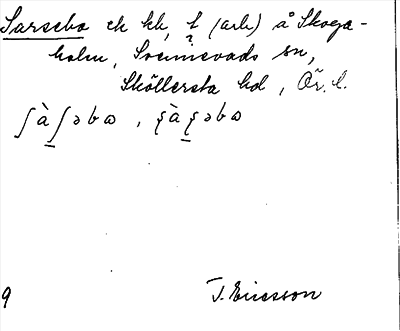 Sarscebo ek kk, t (ark) å Skoga-
holm, Svennevads sn,
Sköllersta hd, Ör. l.
ʃàʃəbɷ, ʂàʂəbɷ
9 T. Ericsson